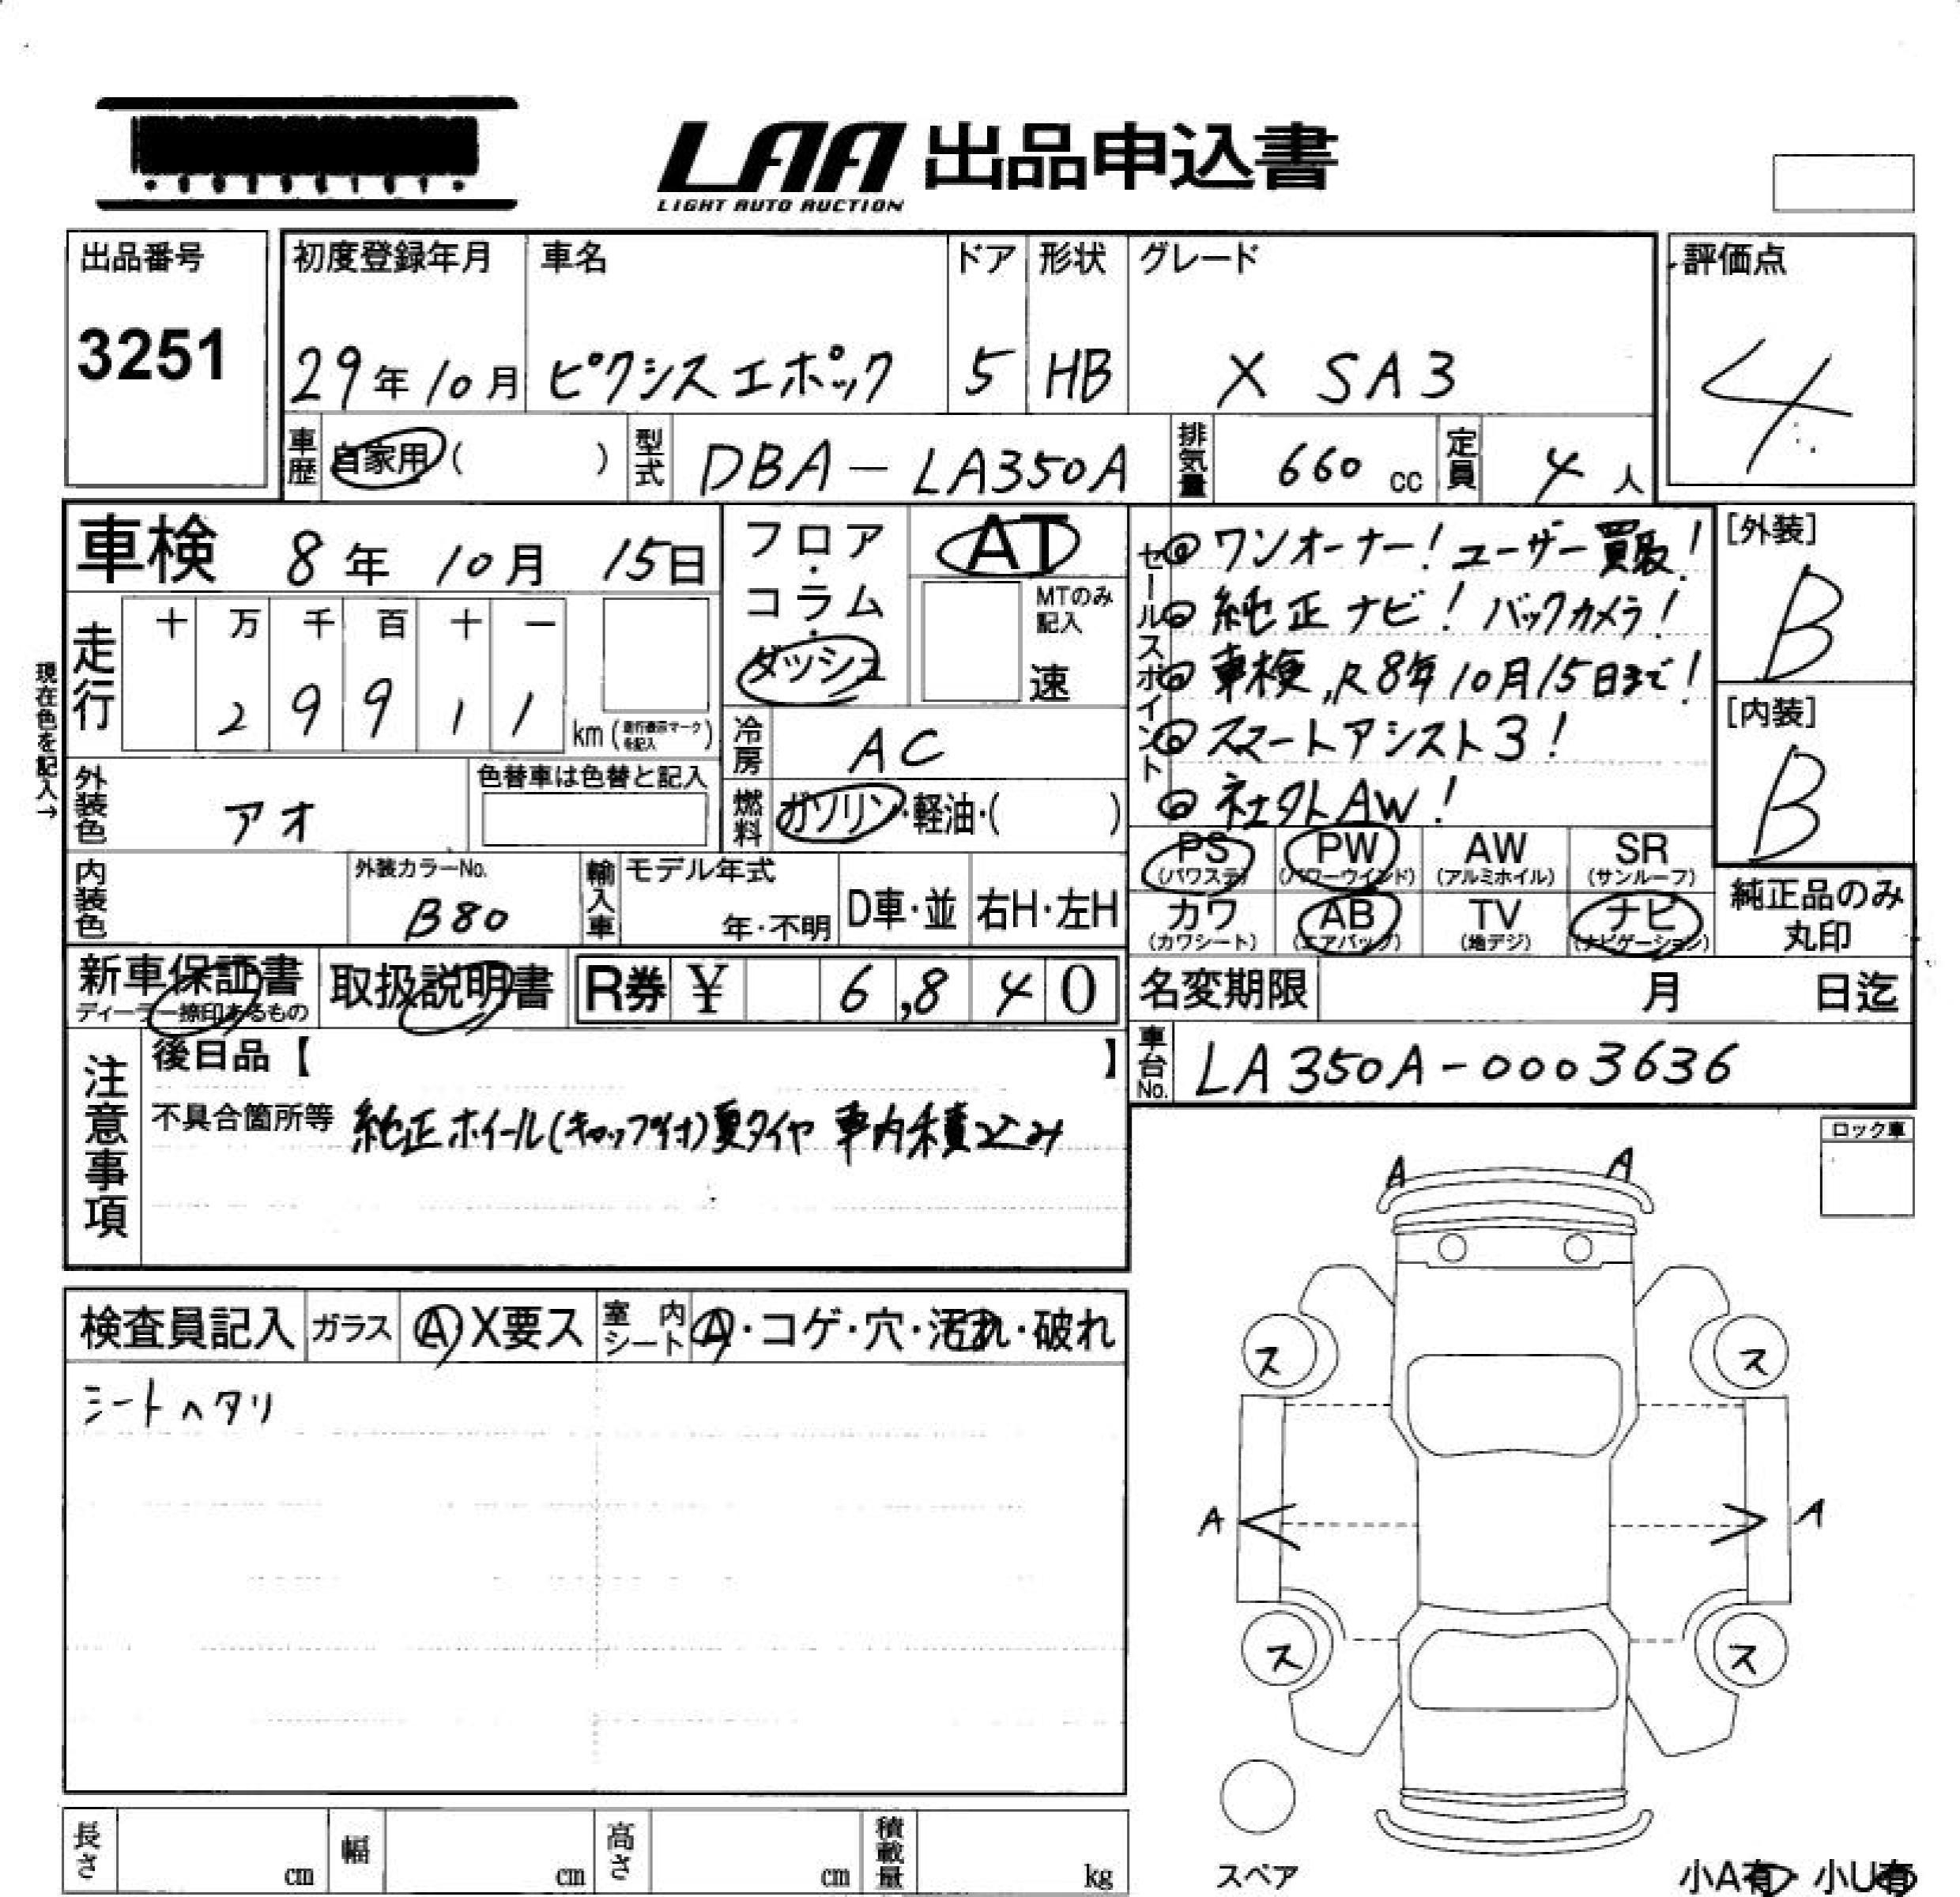 LAA 出品申込書
LIGHT AUTO AUCTION
出品番号 初度登録年月 車名 ドア 形状 グレード 評価点
3251 29年10月 ピクシスエポック 5 HB X SA3 4
車歴 自家用( ) 型式 DBA-LA350A 排気量 660cc 定員 4人
車検 8年 10月 15日
フロア・コラム・ダッシュ
AT
MTのみ記入
速
セールスポイント
◎ワンオーナー!ユーザー買取!
◎純正ナビ!バックカメラ!
◎車検,R8年10月15日まで!
◎スマートアシスト3!
◎社外AW!
[外装]
B
[内装]
B
走行 十 万 千 百 十 一
2 9 9 1 1 km(走行表示マークを記入)
現在色を記入→
冷房 AC
外装色 アオ 色替車は色替と記入
燃料 ガソリン・軽油・( )
PS (パワステ) PW (パワーウインド) AW (アルミホイル) SR (サンルーフ)
カワ (カワシート) AB (エアバッグ) TV (地デジ) ナビ (ナビゲーション)
純正品のみ丸印
内装色 外装カラーNo. B80 輸入車 モデル年式 年・不明 D車・並 右H・左H
新車保証書 ディーラー捺印あるもの 取扱説明書 R券 ¥ 6,840
名変期限 月 日迄
車台No. LA350A-0003636
注意事項
後日品【 】
不具合箇所等 純正ホイール(キャップ付)夏タイヤ 車内積込み
ロック車
検査員記入 ガラス A X要ス 室内シート A・コゲ・穴・汚れ・破れ
シートヘタリ
A A
ス ス
A A
ス ス
スペア
小A有 小U有
長さ cm 幅 cm 高さ cm 積載量 kg